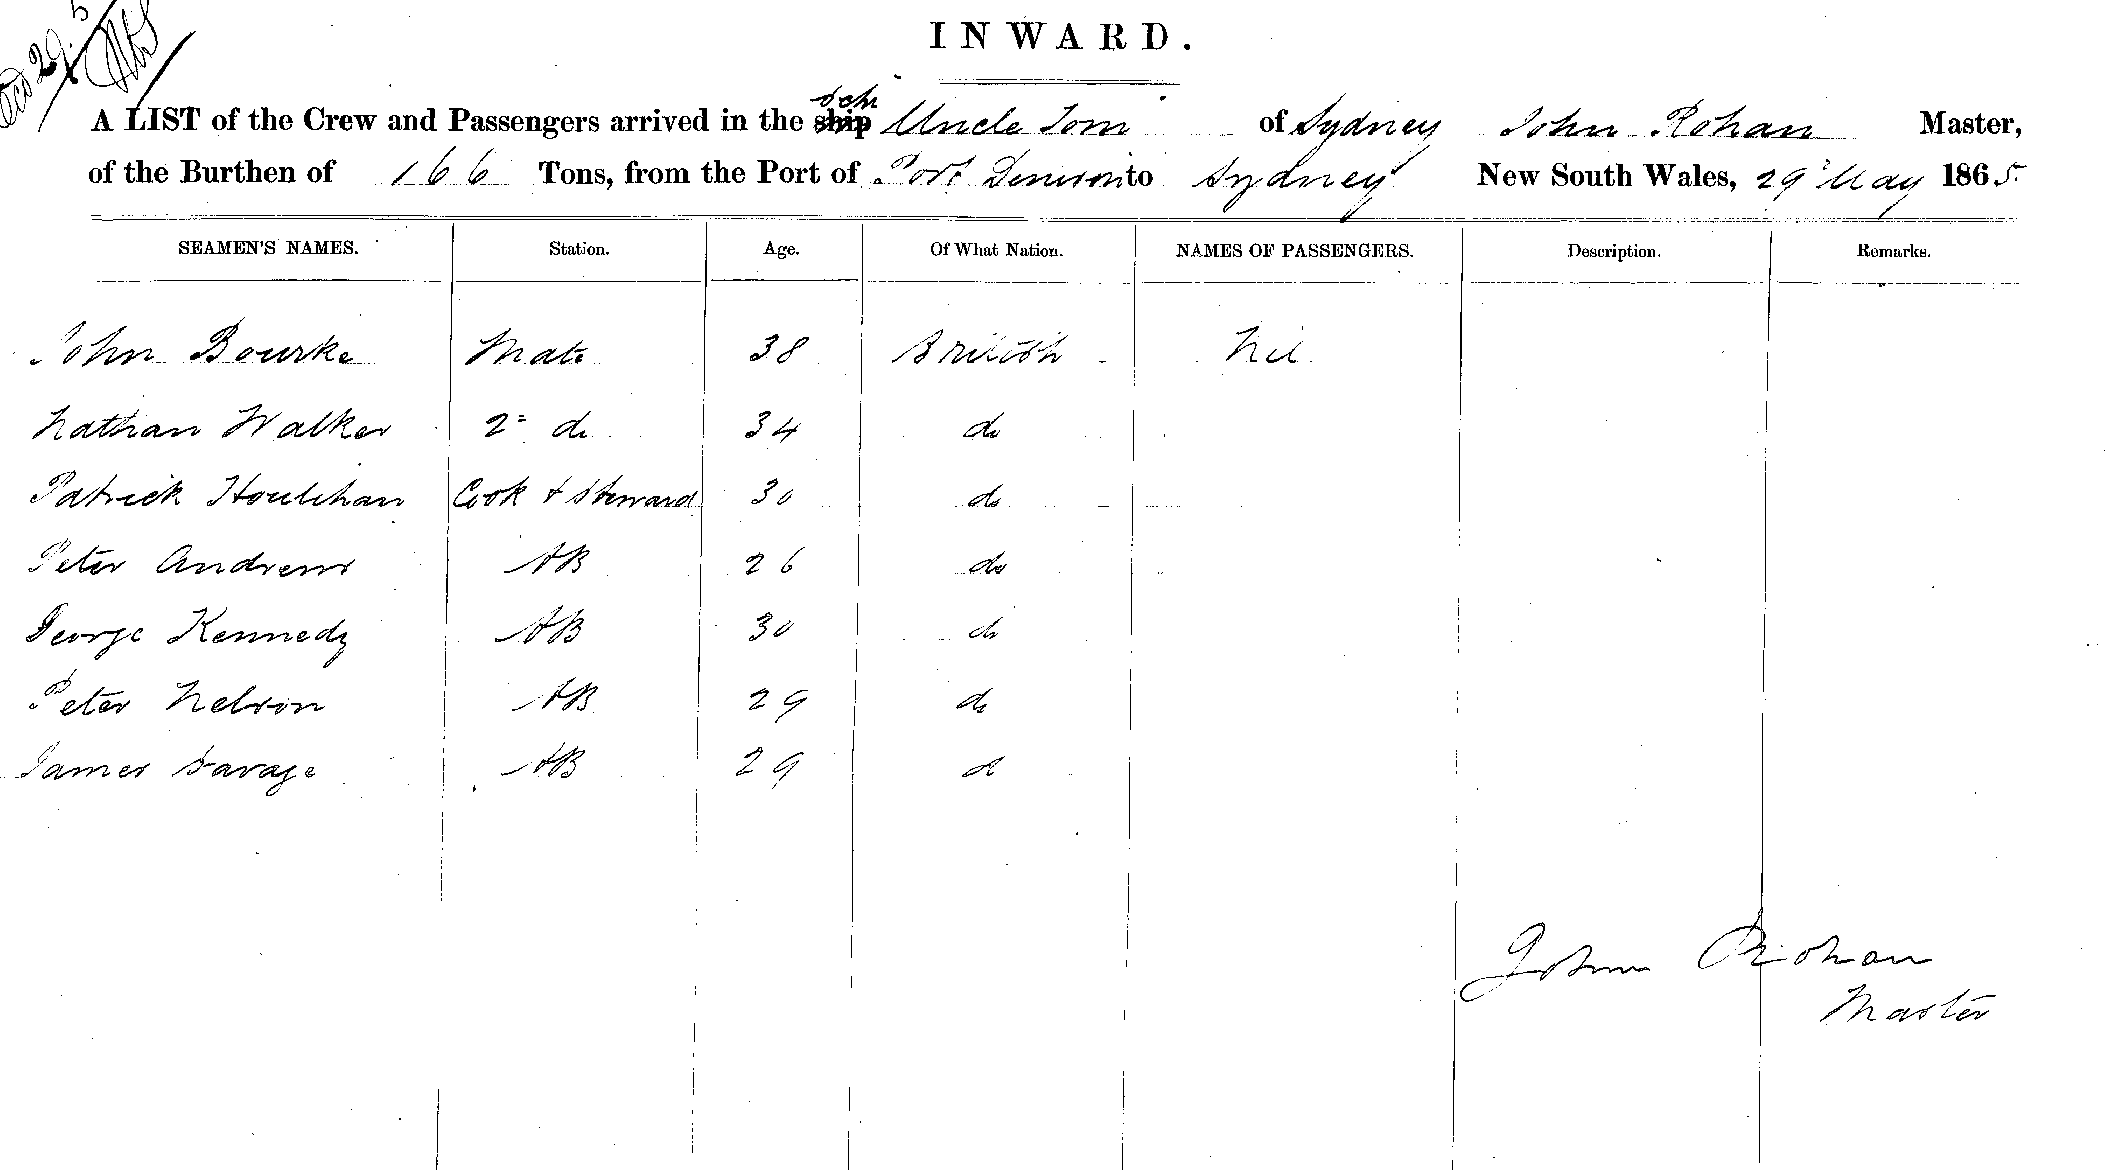 INWARD.
A LIST of the Crew and Passengers arrived in the ship Sch Uncle Tom of Sydney John Rohan Master,
of the Burthen of 166 Tons, from the Port of Port Denison to Sydney New South Wales, 29 May 1865.
SEAMEN'S NAMES. Station. Age. Of What Nation. NAMES OF PASSENGERS. Description. Remarks.
John Bourke Mate 38 British Nil
Nathan Walker 2d do 34 do
Patrick Houlihan Cook & Steward 30 do
Peter Andrews AB 26 do
George Kennedy AB 30 do
Peter Nelson AB 29 do
James Savage AB 29 do
John Rohan
Master